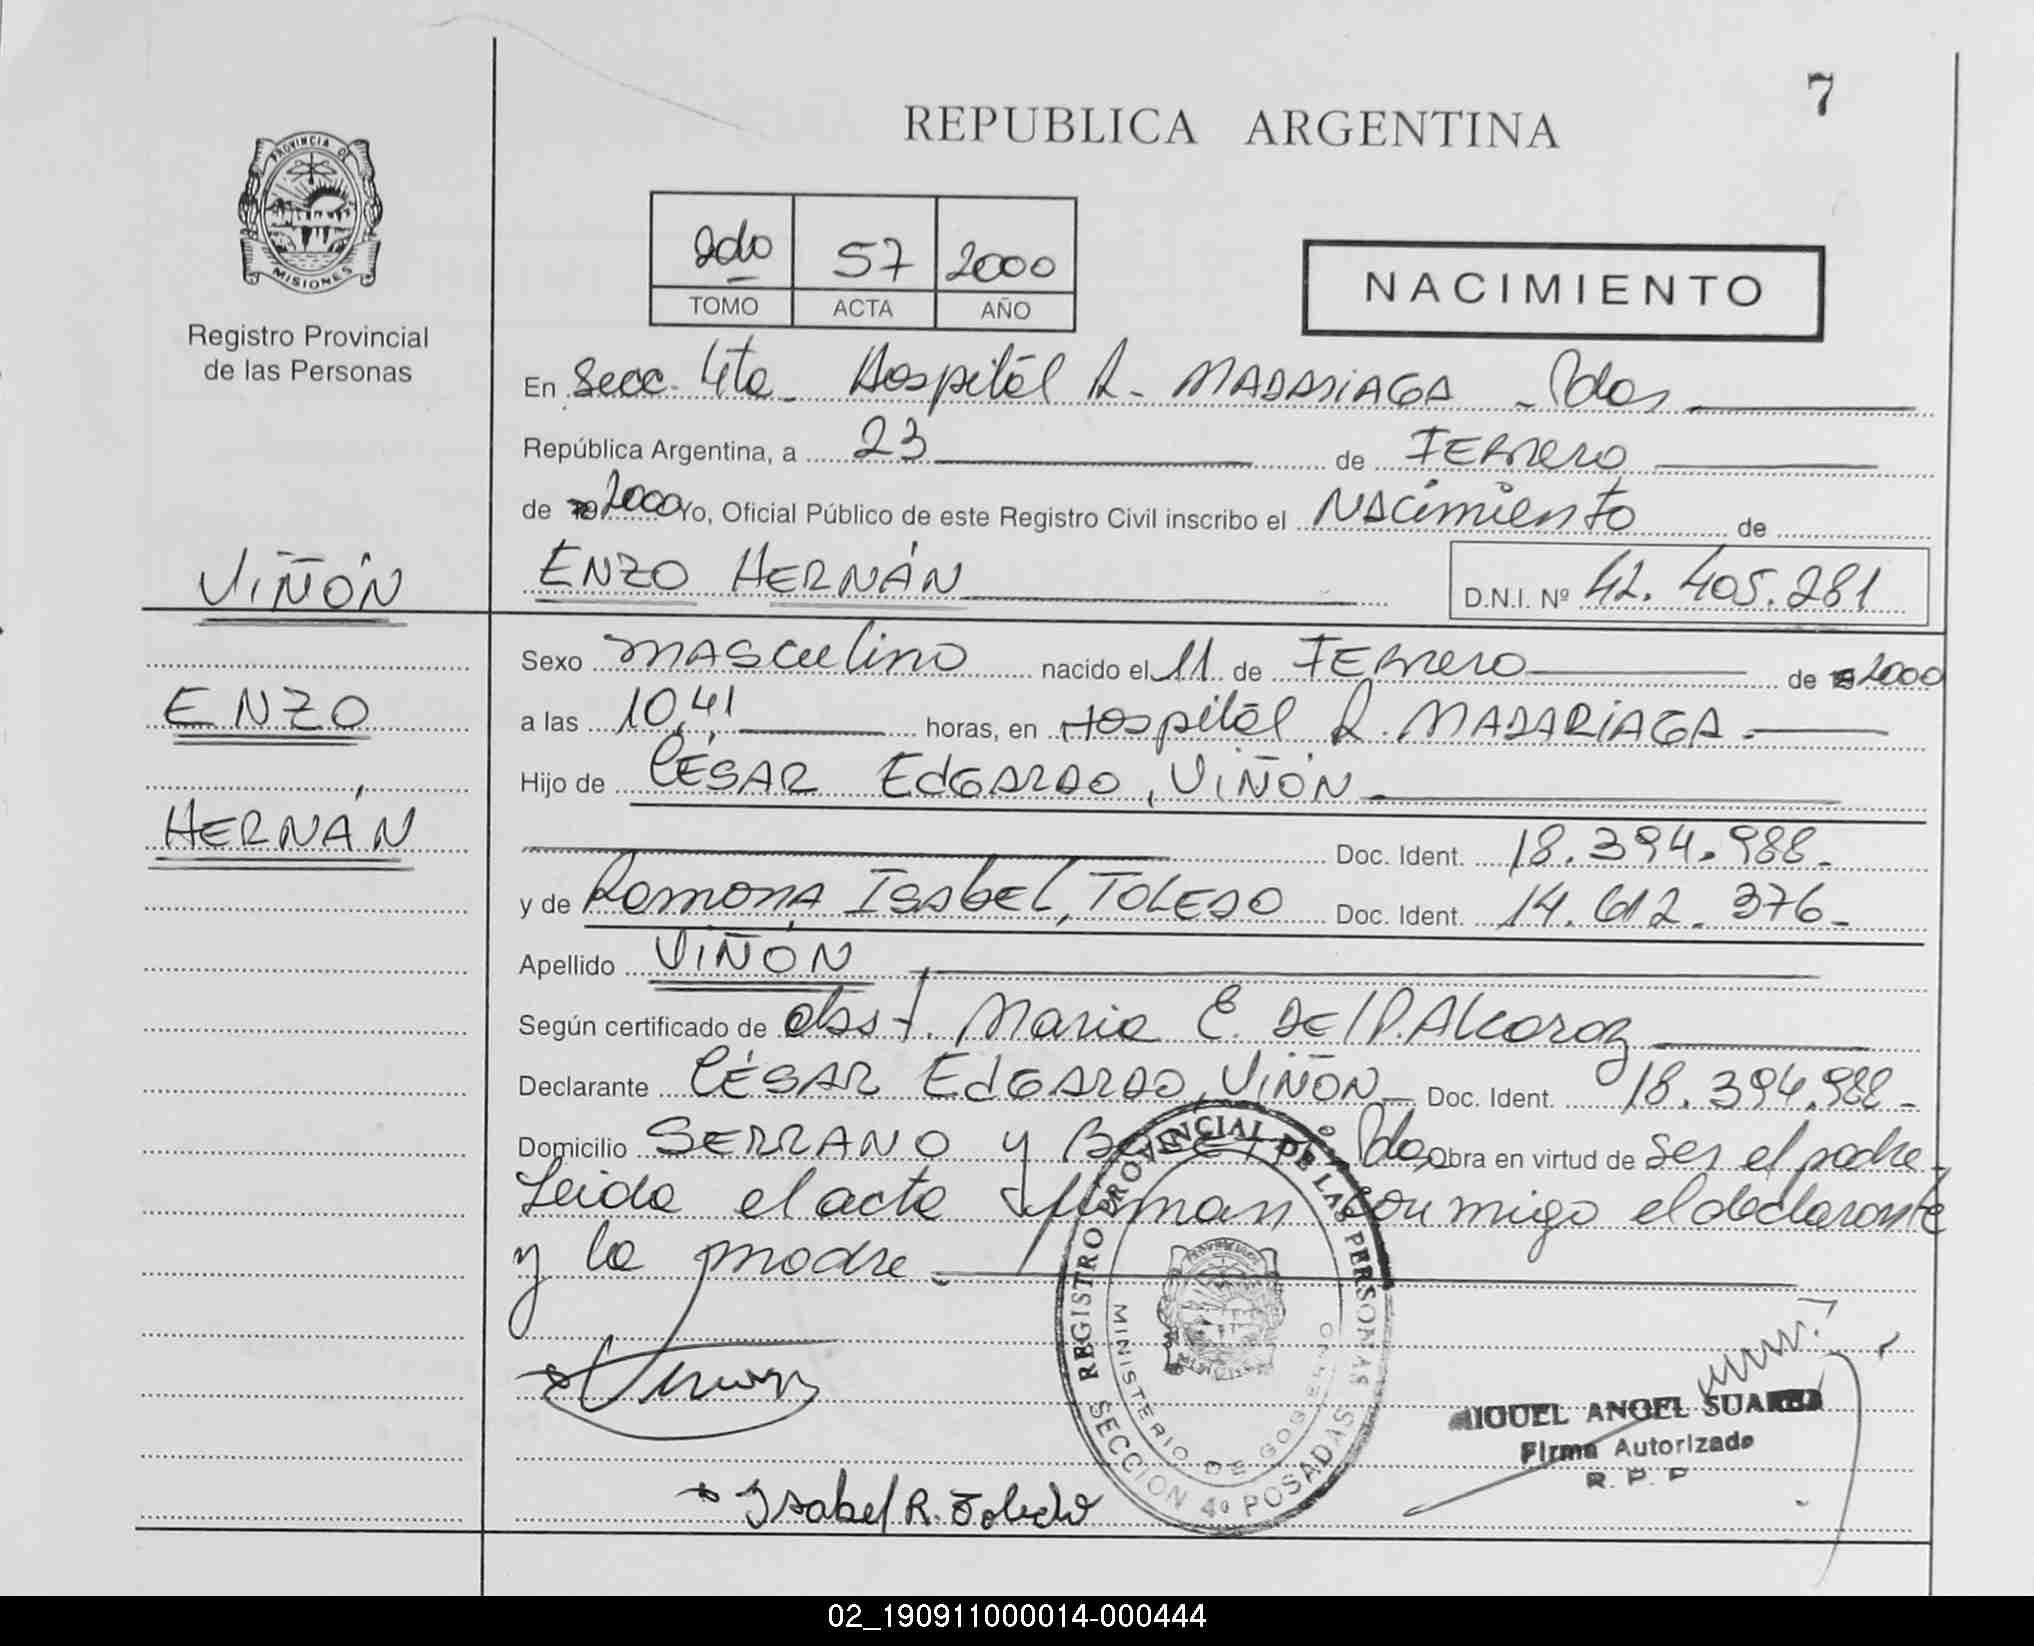 7
REPUBLICA ARGENTINA
PROVINCIA DE
MISIONES
Registro Provincial
de las Personas
2do 57 2000
TOMO ACTA AÑO
NACIMIENTO
En Secc. 4ta - Hospitál R. MADARIAGA - Pdas
República Argentina, a 23 de FEBrero
de 2000 Yo, Oficial Público de este Registro Civil inscribo el NAcimiento de
ENZO HERNÁN D.N.I. Nº 42.405.281
VIÑÓN
ENZO
HERNÁN
Sexo MAScuLino nacido el 11 de FEBrero de 2000
a las 10,41 horas, en Hospitál R. MADARIAGA.
Hijo de CÉSAR EdGARDO, VIÑÓN
Doc. Ident. 18.394.988.-
y de RamonA ISAbEL, TOLEDO Doc. Ident. 14.612.376.-
Apellido VIÑÓN
Según certificado de obst. Maria E. DE P. Alcaraz
Declarante CÉSAR EdGARDO, VIÑÓN Doc. Ident. 18.394.988.-
Domicilio SERRANO y Pdas Obra en virtud de ser el padre.
Leida el acta firman conmigo el declarante
y la madre.
REGISTRO PROVINCIAL DE LAS PERSONAS
MINISTERIO DE GOBIERNO
SECCION 4ª POSADAS
Isabel R. Toledo
MIGUEL ANGEL SUAREZ
Firma Autorizada
R. P. P
02_190911000014-000444